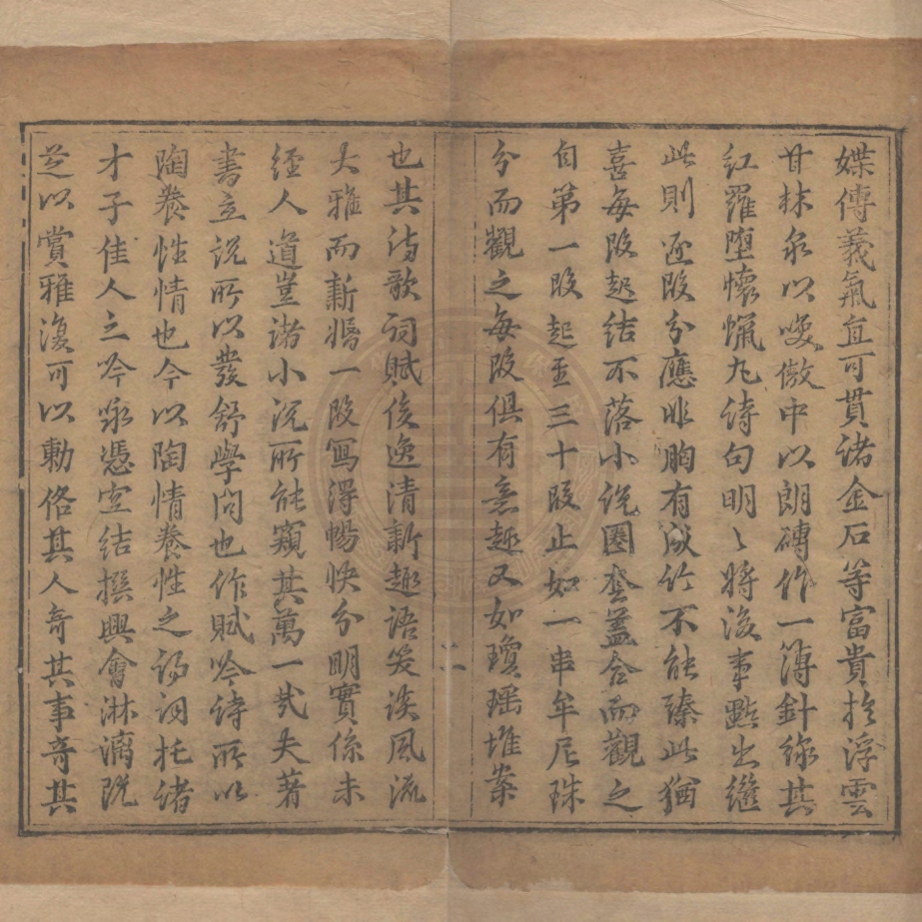 媒傳義氣直可貫諸金石等富貴扵浮雲
甘林泉以嗳傲中以朗磚作一簿針線其
紅羅墮懷蠟九詩句明〻將後事點出繼
此則逐段分應非胸有成竹不能臻此猶
喜每段起結不落小說圈套盖合而觀之
自第一段起至三十段止如一串牟尼珠
分而觀之每段俱有意趣又如瓊瑶堆案
也其詩歌詞賦俊逸清新趣語笑談風流
大雅而新婚一段寫淂暢快分明實係未
經人道豈诸小説所能窺其萬一哉夫著
書立説所以發舒學问也作賦吟诗所以
陶養性情也今以陶情養性之詩詞托诸
才子佳人之吟咏憑空结撰興會淋漓既
足以賞雅復可以勸俗其人奇其事奇其
二